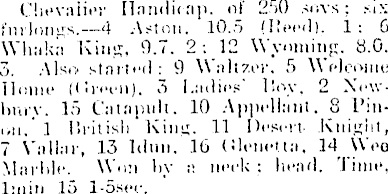 Chevalier Handicap, of 250 sovs; six
furlongs.—4 Aston, 10.5 (Reed), 1; 6
Whaka King, 9.7, 2; 12 Wyoming, 8.0,
3. Also started: 9 Waltzer, 5 Welcome
Home (Green), 3 Ladies' Boy, 2 New-
bury, 15 Catapult, 10 Appellant, 8 Pin-
on, 1 British King, 11 Desert Knight,
7 Vallar, 13 Idun, 16 Glenetta, 14 Wee
Marble. Won by a neck; head. Time,
1min 15 1-5sec.